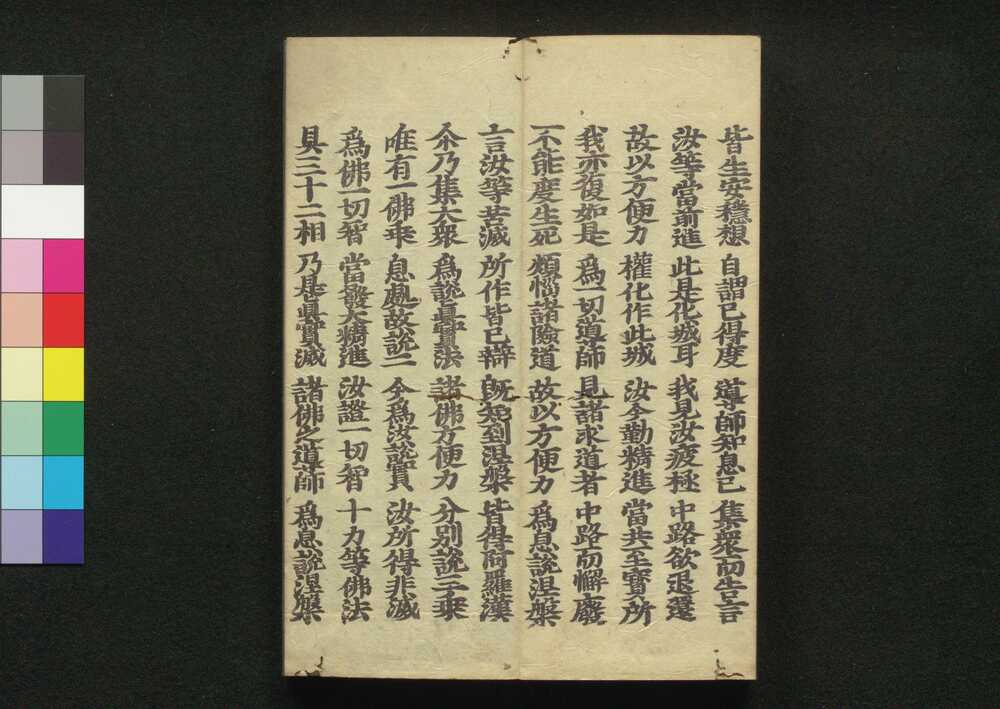 皆生安穩想 自謂已得度 導師知息已 集衆而告言
汝等當前進 此是化城耳 我見汝疲極 中路欲退還
故以方便力 權化作此城 汝今勤精進 當共至寳所
我亦復如是 爲一切導師 見諸求道者 中路而懈廢
不能度生死 煩惱諸險道 故以方便力 爲息說涅槃
言汝等苦滅 所作皆已辦 既知到涅槃 皆得阿羅漢
尒乃集大衆 爲說真實法 諸佛方便力 分別說三乘
唯有一佛乘 息處故說二 今爲汝說實 汝所得非滅
爲佛一切智 當發大精進 汝證一切智 十力等佛法
具三十二相 乃是真實滅 諸佛之導師 爲息說涅槃